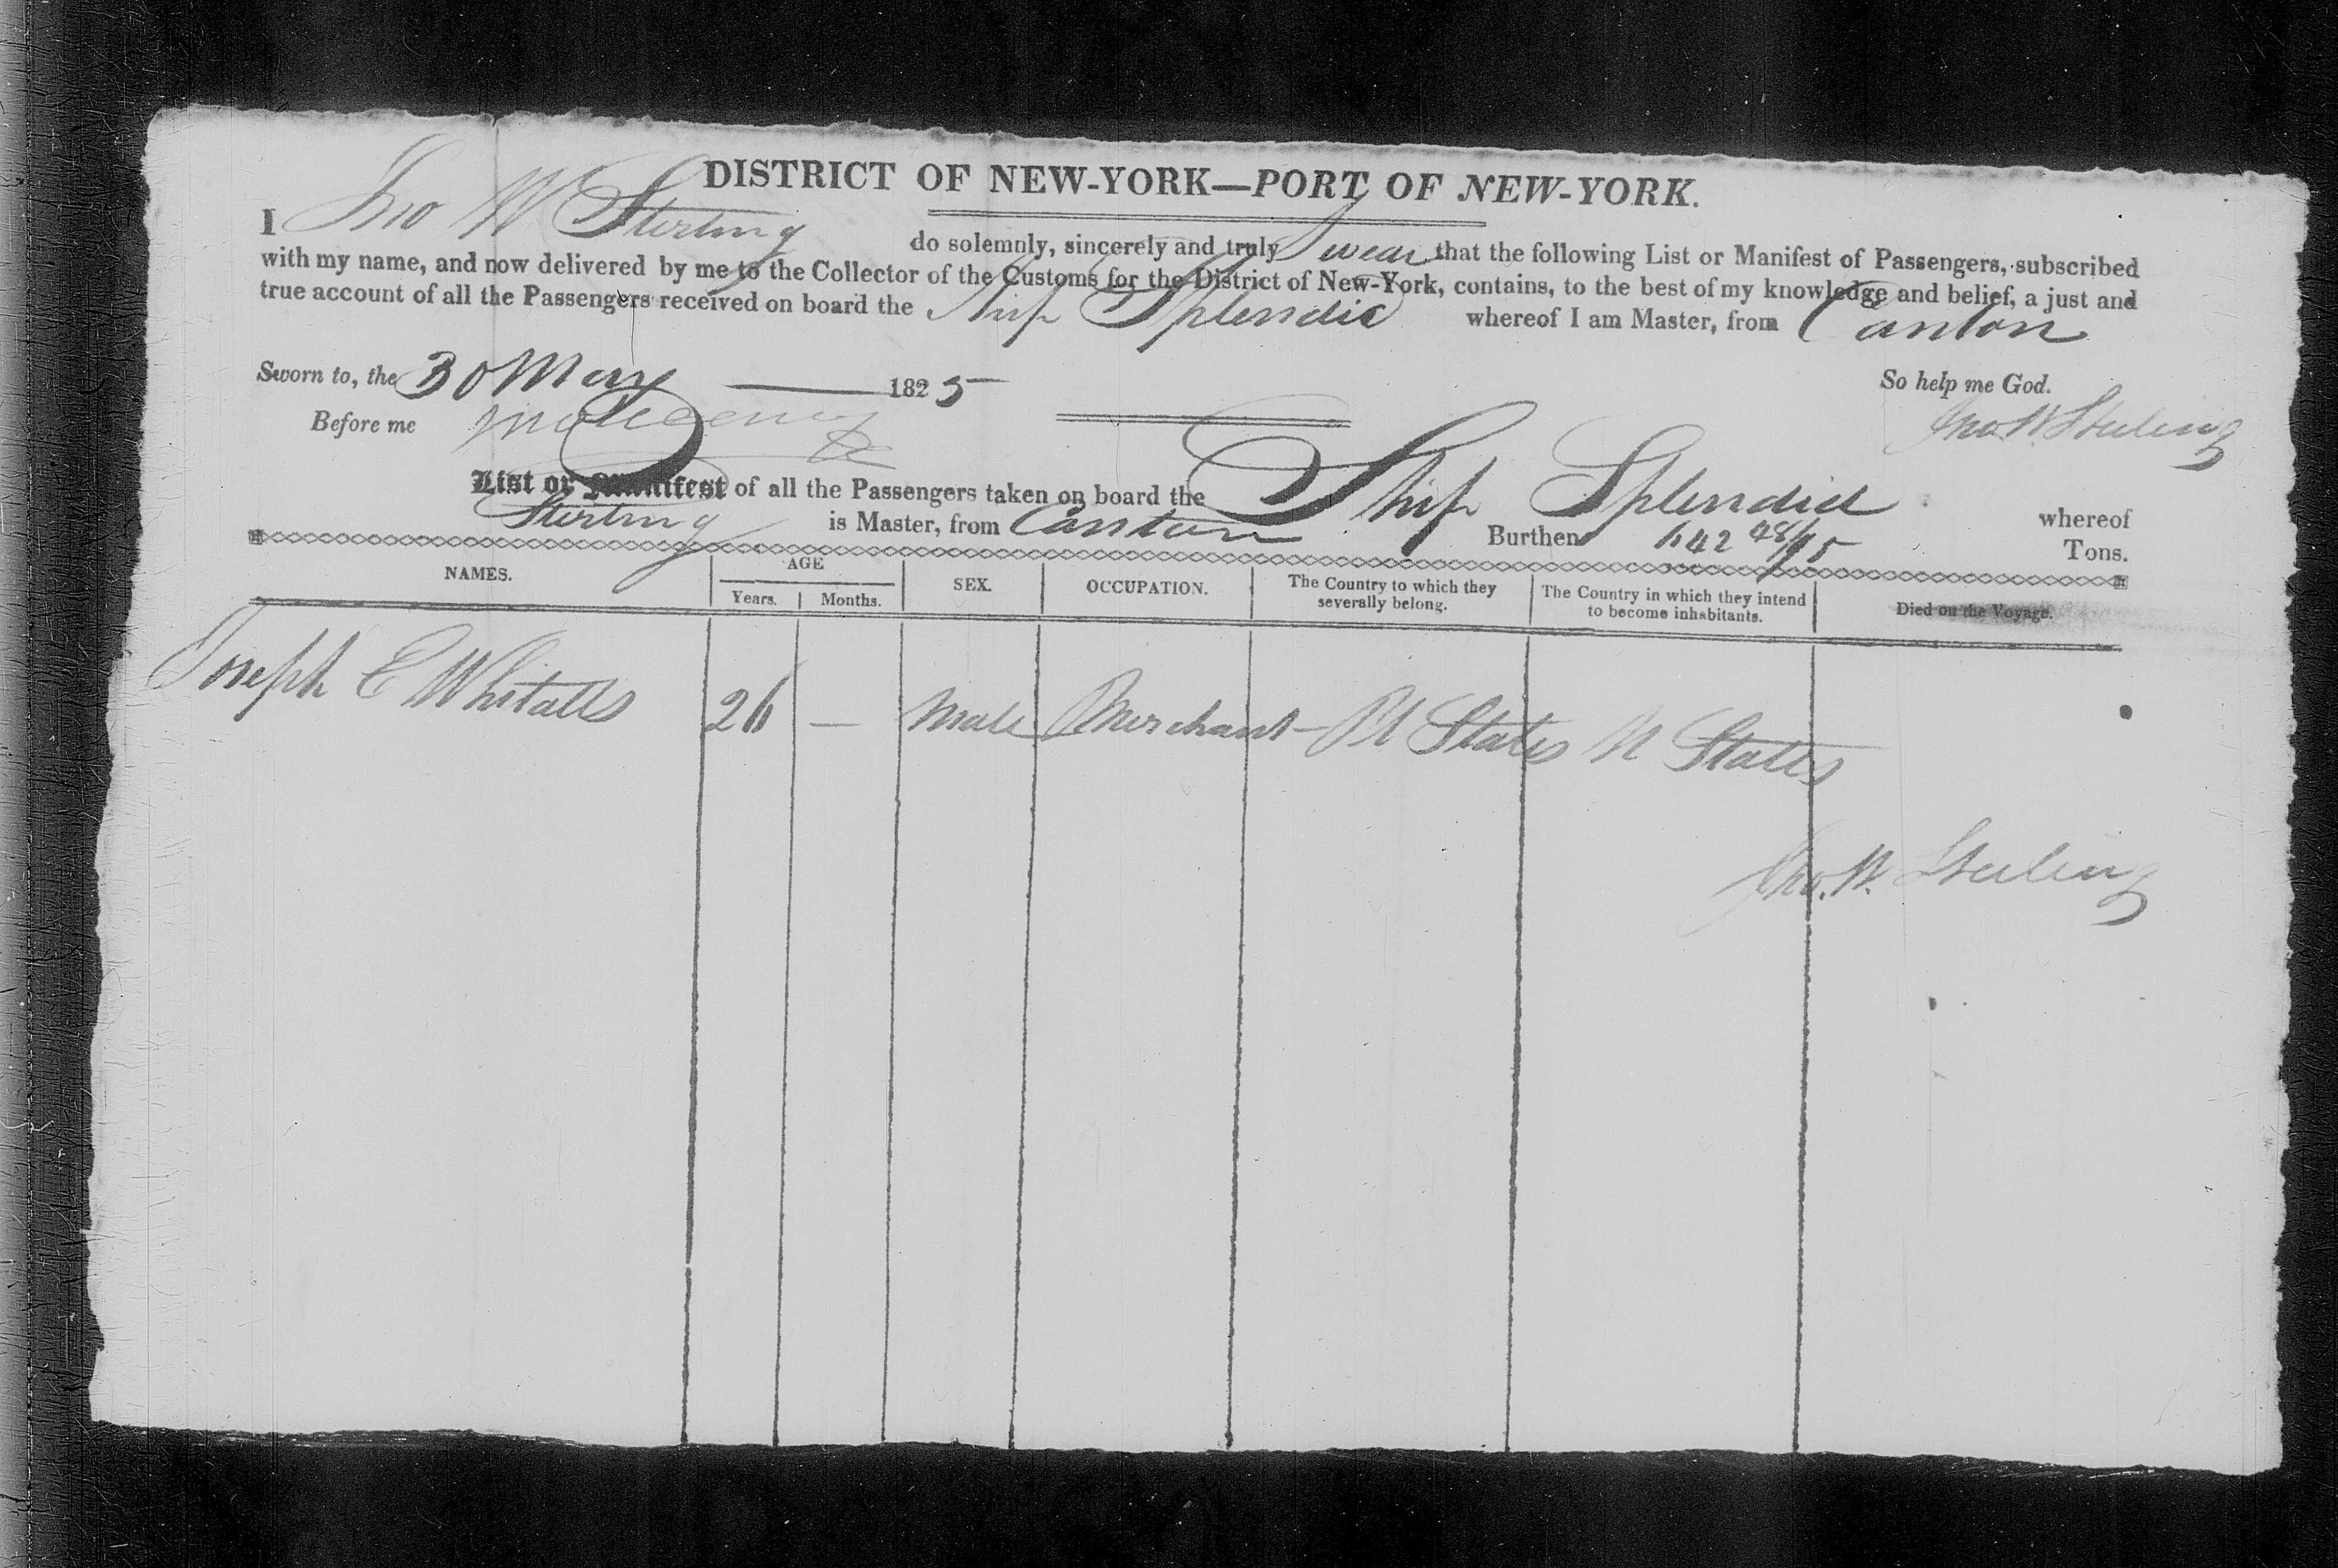 DISTRICT OF NEW-YORK—PORT OF NEW-YORK.
I Jno W Sterling do solemnly, sincerely and truly Swear that the following List or Manifest of Passengers, subscribed
with my name, and now delivered by me to the Collector of the Customs for the District of New-York, contains, to the best of my knowledge and belief, a just and
true account of all the Passengers received on board the Ship Splendid whereof I am Master, from Canton
Sworn to, the 30 May 1825 So help me God.
Before me Jno W Sterling
List or Manifest of all the Passengers taken on board the Ship Splendid whereof
Sterling is Master, from Canton Burthen 642 48/95 Tons.
NAMES. AGE Years. Months. SEX. OCCUPATION. The Country to which they severally belong. The Country in which they intend to become inhabitants. Died on the Voyage.
Joseph E Whitalls 26 — Male Merchant U States U States
Jno. W. Sterling